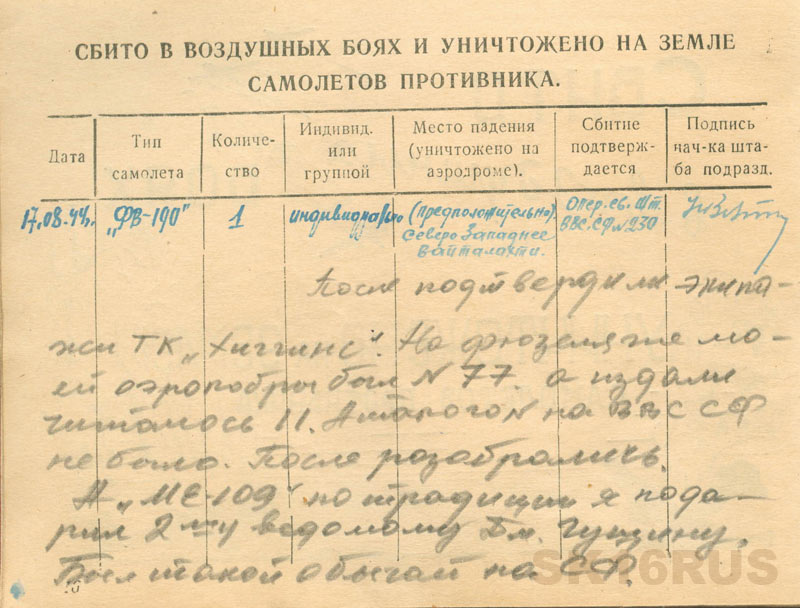 СБИТО В ВОЗДУШНЫХ БОЯХ И УНИЧТОЖЕНО НА ЗЕМЛЕ
САМОЛЕТОВ ПРОТИВНИКА.
Дата
Тип
самолета
Количе-
ство
Индивид.
или
группой
Место падения
(уничтожено на
аэродроме).
Сбитие
подтверж-
дается
Подпись
нач-ка шта-
ба подразд.
17.08.44.
„ФВ-190"
1
индивидуально
(предположительно)
Северо Западнее
Вайталахти.
Опер. св. Шт.
ВВС СФ №230
После подтвердили экипа-
жи ТК „Хиггинс". На фюзеляже мо-
ей аэрокобры был N 77. а издали
читалось 11. А такого N на ВВС СФ
не было. После разобрались.
А „МЕ-109" по традиции я пода-
рил 2-му ведомому Вл. Гущину.
Был такой обычай на СФ.
SK16RUS